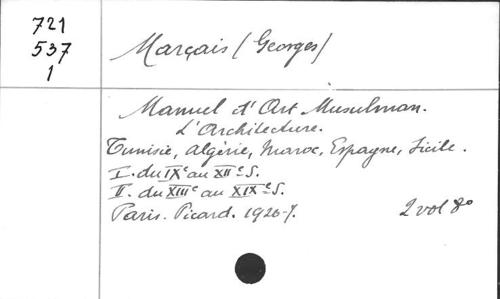 721
537
1
Marçais (Georges)
Manuel d'Art Musulman.
L'Architecture.
Tunisie, Algérie, Maroc, Espagne, Sicile.
I. du IXe au XIIe S.
II. du XIIIe au XIXe S.
Paris. Picard. 1926-7. 2 vol 8o